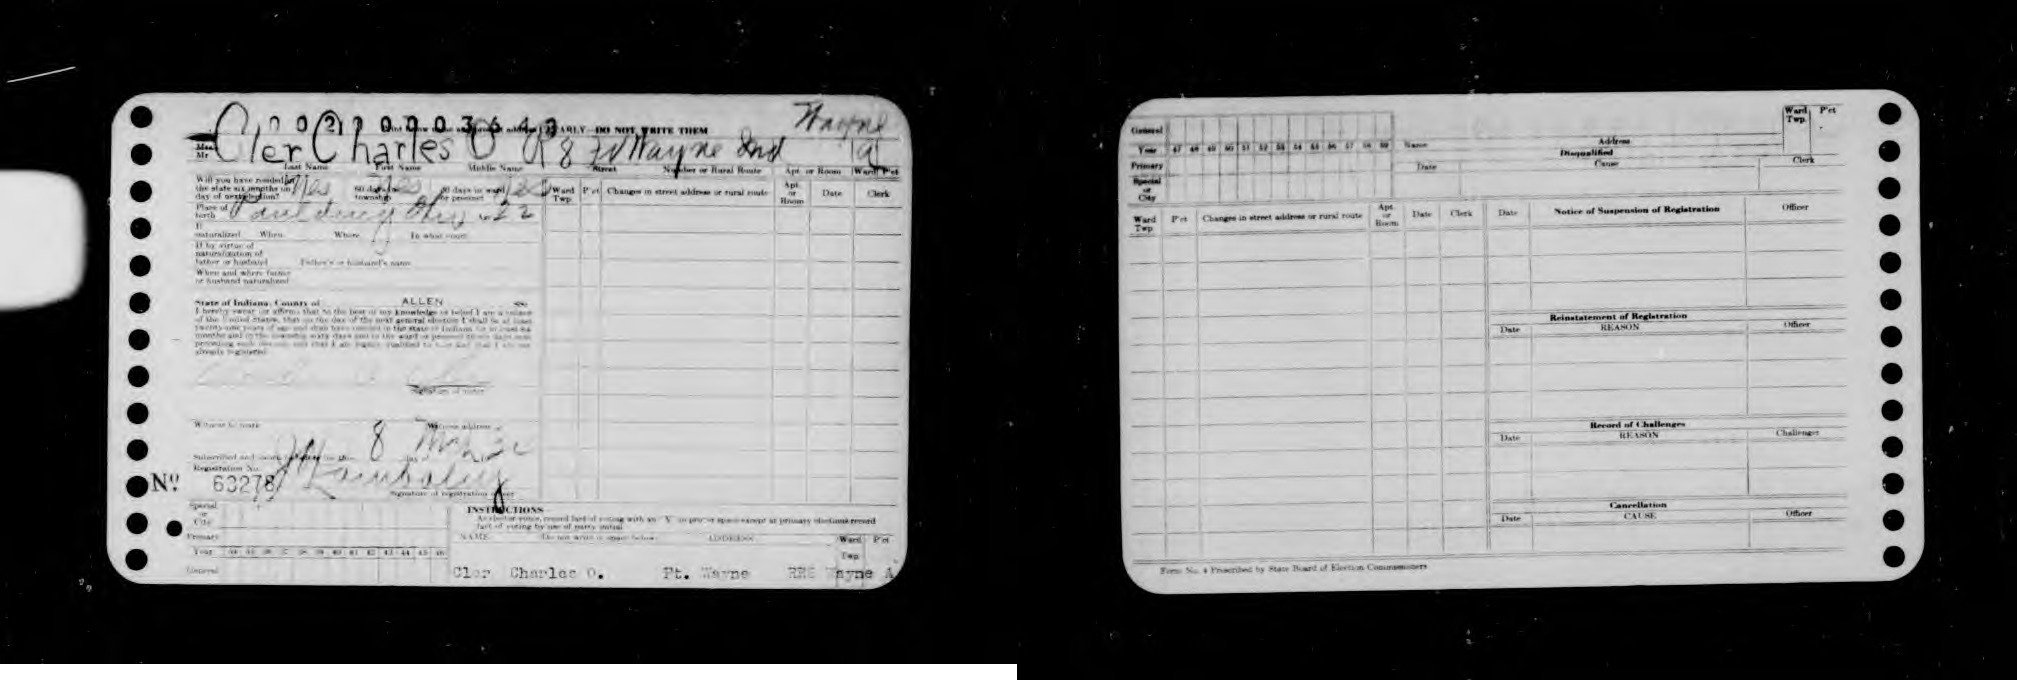 Wayne
0 0 2 1 0 0 0 3 6 4 3
EARLY DO NOT WRITE THEM
Mr
Cler Charles O R 8 Ft Wayne Ind A
Last Name First Name Middle Name Street Number or Rural Route Apt. or Room Ward P'ct
Will you have resided in
the state six months on Yes 60 days in Yes 30 days in ward Yes
day of next election? township or precinct
Ward Twp. P'ct Changes in street address or rural route Apt. or Room Date Clerk
Place of
birth Paulding Ohio
If
naturalized When Where In what court
If by virtue of
naturalization of
father or husband Father's or husband's name
When and where father
or husband naturalized
State of Indiana, County of ALLEN ss:
I hereby swear or affirm that to the best of my knowledge or belief I am a citizen
of the United States, that on the day of the next general election I shall be at least
twenty-one years of age and shall have resided in the state of Indiana for at least six
months and in the township sixty days and in the ward or precinct thirty days next
preceding such election and that I am legally qualified to vote and that I am not
already registered
Signature of voter
Witness to mark Witness address
8
Subscribed and sworn to before me this day
Registration No.
Nº 63278
Signature of registration officer
Special
or
City
Primary
Year 34 35 36 37 38 39 40 41 42 43 44 45 46
General
INSTRUCTIONS
As elector votes, record fact of voting with an "V" in proper space except at primary elections record
fact of voting by use of party initial
NAME Do not write in space below ADDRESS Ward Twp. P'ct
Cler Charles O. Ft. Wayne RR8 Wayne A
General
Year 47 48 49 50 51 52 53 54 55 56 57 58 59
Primary
Special
or
City
Name Address
Ward Twp. P'ct
Disqualified
Date Cause Clerk
Ward Twp P'ct Changes in street address or rural route Apt. or Room Date Clerk
Date Notice of Suspension of Registration Officer
Reinstatement of Registration
Date REASON Officer
Record of Challenges
Date REASON Challenger
Cancellation
Date CAUSE Officer
Form No. 4 Prescribed by State Board of Election Commissioners